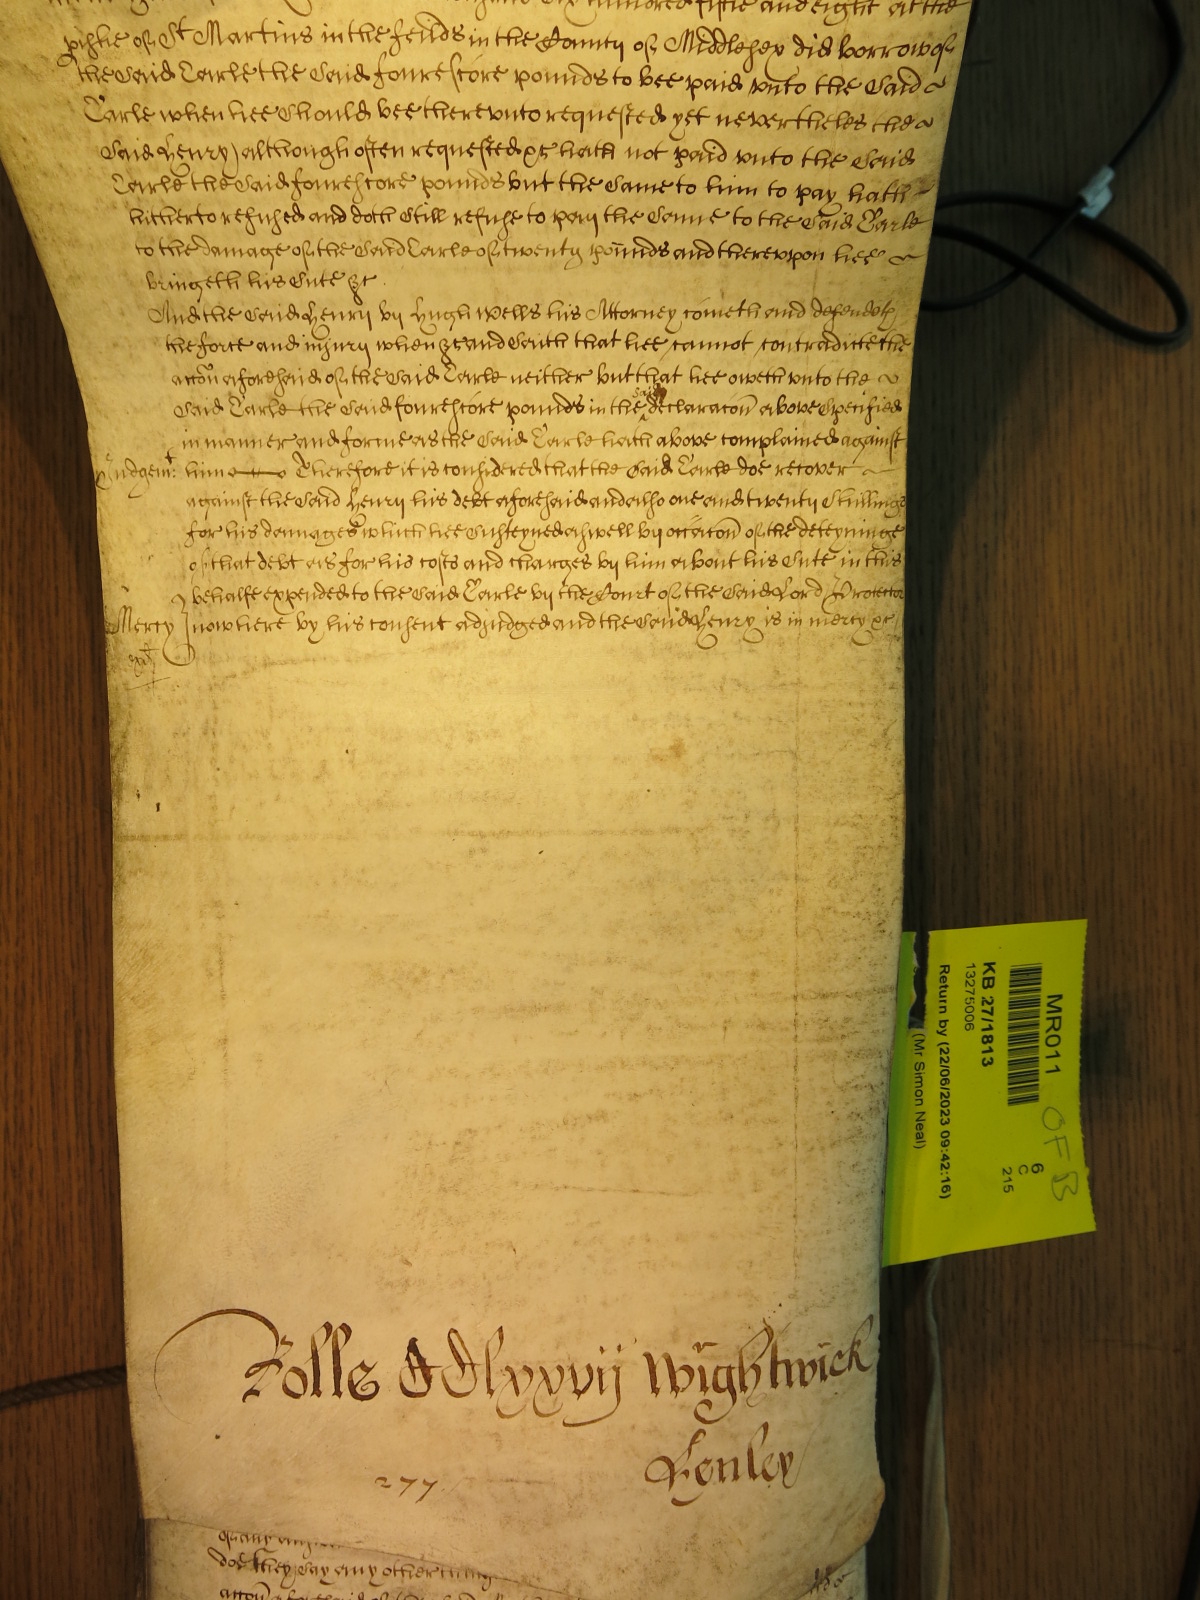 hundred fiftie and eight att the
pishe of St Martins in the feilds in the County of Middlesex did borrow of
the said Carle the said fourescore pounds to bee paid vnto the said
Carle when hee should bee therevnto requested yet nevertheles the
said Henry although often requested &c hath not paid vnto the said
Carle the said fourescore pounds but the same to him to pay hath
hitherto refused and doth still refuse to pay the same to the said Carle
to the damage of the said Carle of twenty pounds and therevpon hee
bringeth his sute &c
And the said Henry by Hugh Wells his Attorney cometh and defendeth
the force and iniury when &c and saith that hee cannot contradicte the
accon aforesaid of the said Carle neither but that hee oweth vnto the
said Carle the said fourescore pounds in the said declaracon above specified
in manner and forme as the said Carle hath above complained against
Judgemt him Therefore it is considered that the said Carle doe recover
against the said Henry his debt aforesaid and alsoe one and twenty shillings
for his damages which hee susteyned aswell by occacon of the deteyninge
of that debt as for his costs and charges by him about his sute in this
behalfe expended to the said Carle by the Court of the said Lord Protector
Mercy now here by his consent adjudged and the said Henry is in mercy &c
Rolle CClxxvij Wightwick
Henley
277
doe they say any other thing
MR011
KB 27/1813
13275006
Return by (22/06/2023 09:42:16)
(Mr Simon Neal)
6
C
215
OFB